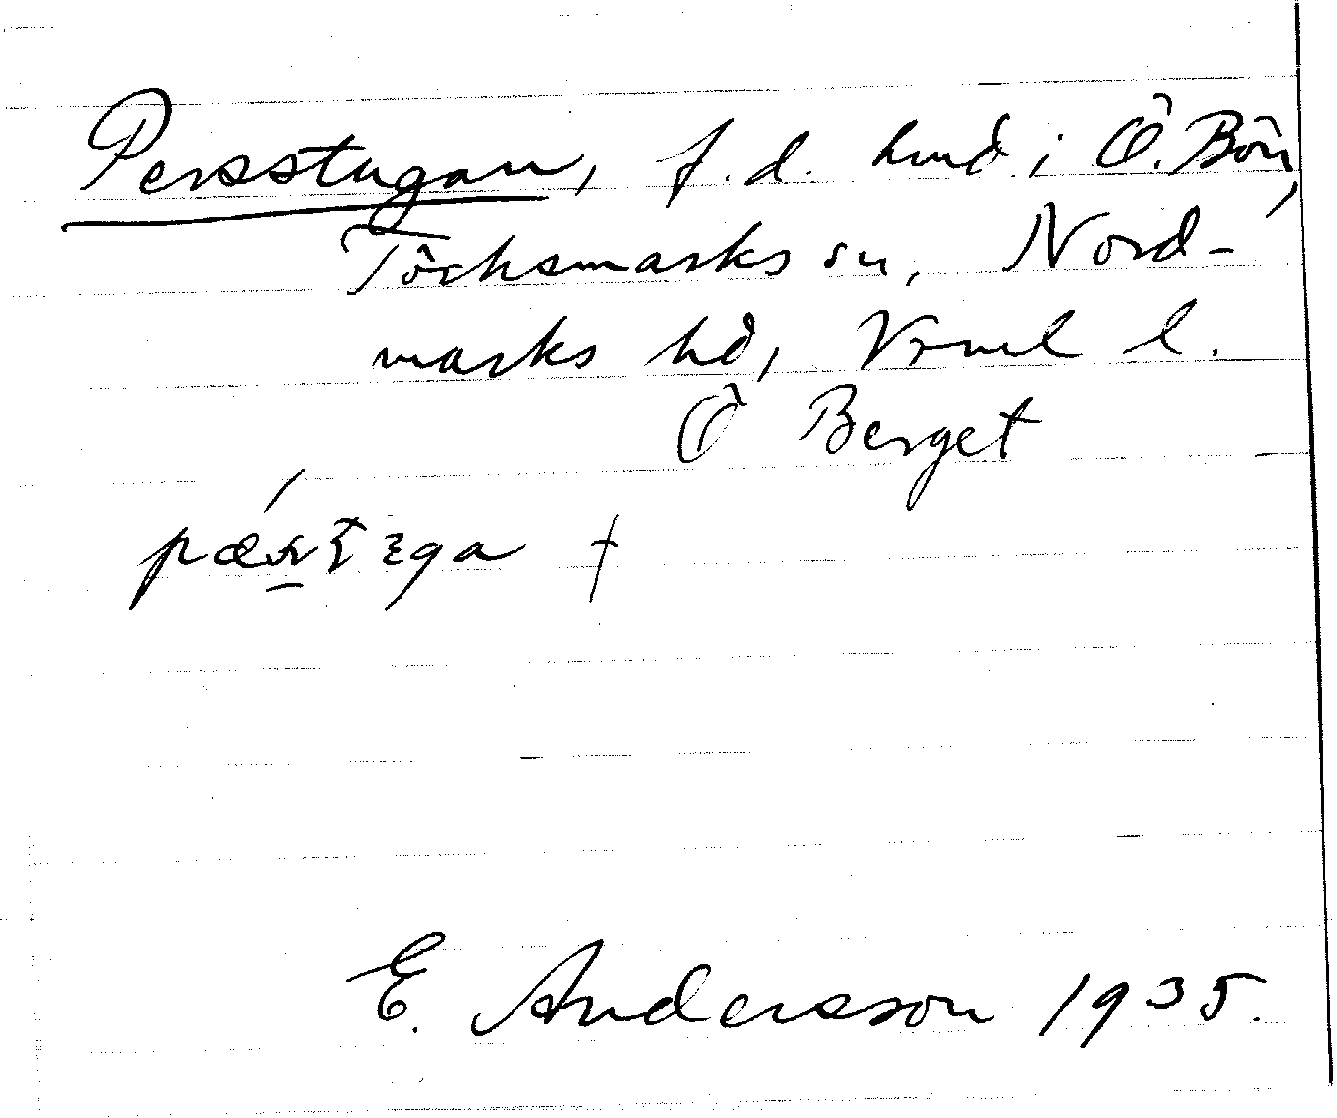 Persstugan, f.d. hmd i Ö. Bön,
Töcksmarks sn, Nord-
marks hd, Vrml l.
Ö Berget
E. Andersson 1935.